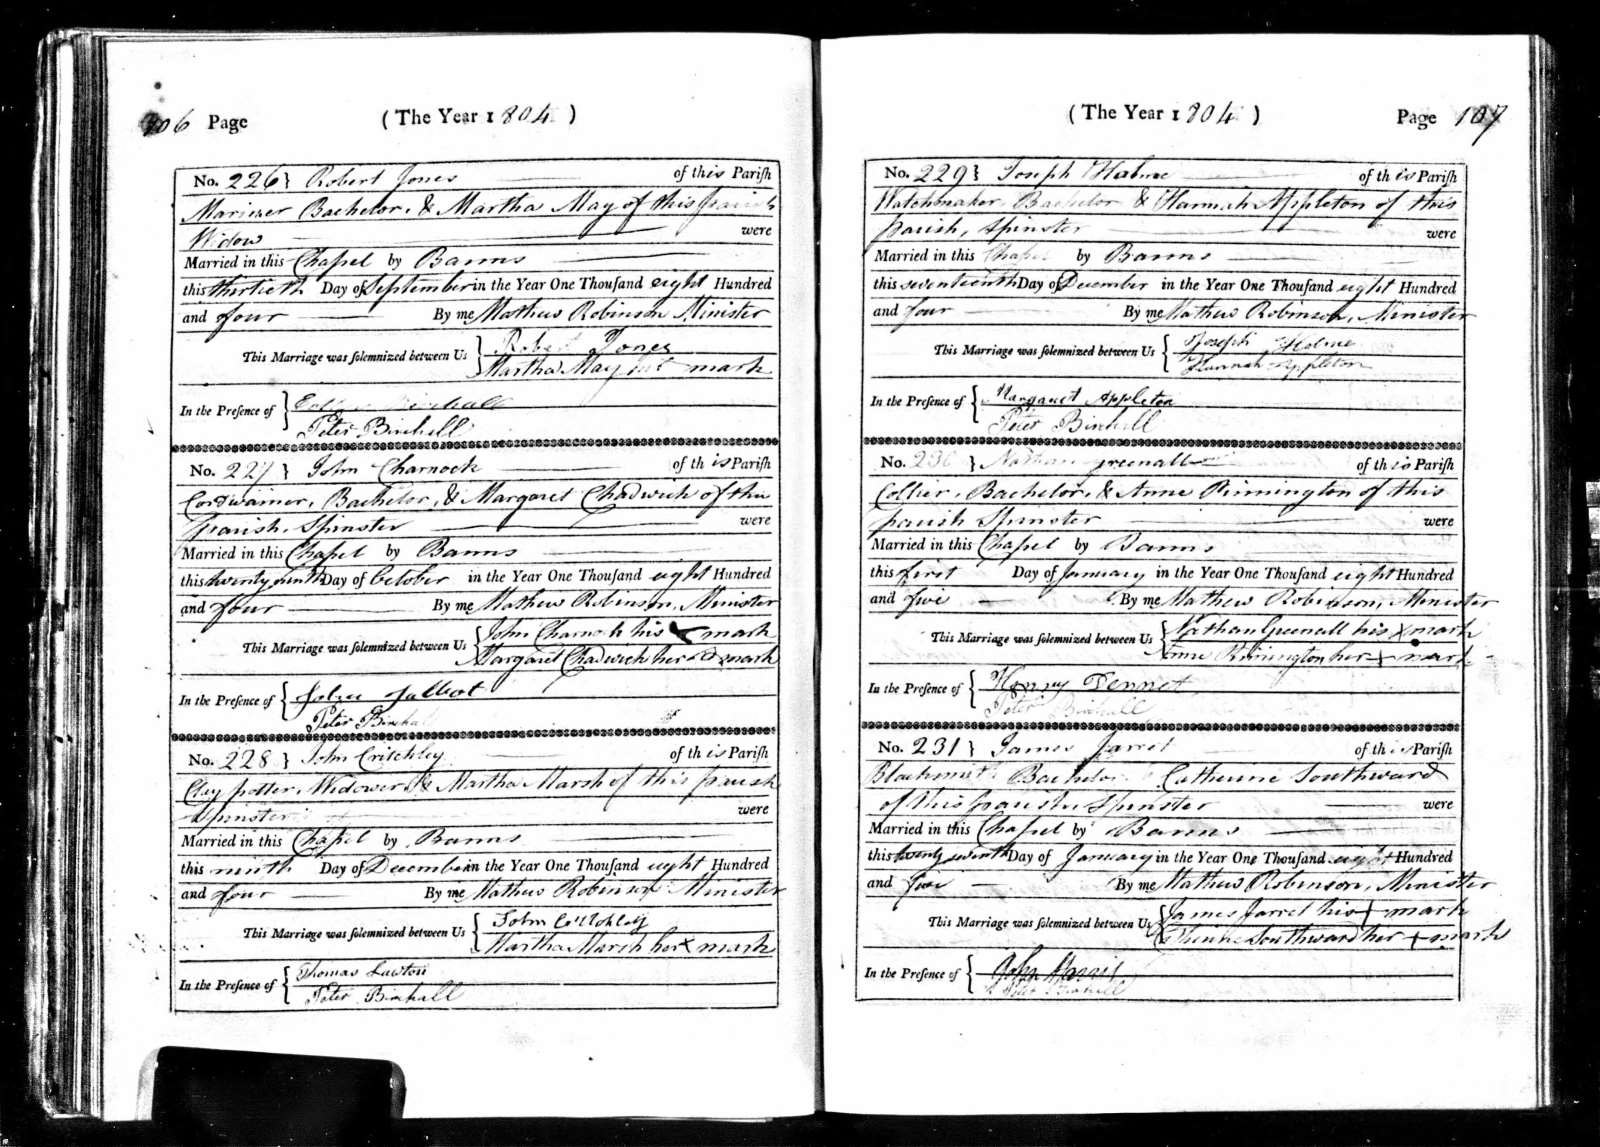 106 Page (The Year 1804)
No. 226} Robert Jones of this Parish
Mariner Bachelor, & Martha May of this parish
Widow were
Married in this Chapel by Banns
this thirtieth Day of September in the Year One Thousand eight Hundred
and four By me Mathew Robinson Minister
This Marriage was solemnized between Us { Robert Jones
Martha May mark
In the Presence of {
Peter Birchall
No. 227} John Charnock of this Parish
Cordwainer, Bachelor, & Margaret Chadwick of this
parish, Spinster were
Married in this Chapel by Banns
this twenty ninth Day of October in the Year One Thousand eight Hundred
and four By me Mathew Robinson, Minister
This Marriage was solemnized between Us { John Charnock his x mark
Margaret Chadwick her x mark
In the Presence of { John Talbot
Peter Birchall
No. 228} John Critchley of this Parish
Clay potter, Widower & Martha Marsh of this parish
Spinster were
Married in this Chapel by Banns
this ninth Day of December in the Year One Thousand eight Hundred
and four By me Mathew Robinson Minister
This Marriage was solemnized between Us { John Critchley
Martha Marsh her x mark
In the Presence of { Thomas Lawton
Peter Birchall
(The Year 1804) Page 107
No. 229} Joseph Holme of this Parish
Watchmaker Bachelor & Hannah Appleton of this
parish, Spinster were
Married in this Chapel by Banns
this seventeenth Day of December in the Year One Thousand eight Hundred
and four By me Mathew Robinson, Minister
This Marriage was solemnized between Us { Joseph Holme
Hannah Appleton
In the Presence of { Margaret Appleton
Peter Birchall
No. 230} Nathan Greenall of this Parish
Collier, Bachelor, & Anne Rinnington of this
parish Spinster were
Married in this Chapel by Banns
this first Day of January in the Year One Thousand eight Hundred
and five By me Mathew Robinson, Minister
This Marriage was solemnized between Us { Nathan Greenall his x mark
Anne Rinnington her + mark
In the Presence of { Henry Dennet
Peter Birchall
No. 231} James Jarret of this Parish
Blacksmith Bachelor & Catherine Southward
of this parish, Spinster were
Married in this Chapel by Banns
this twenty seventh Day of January in the Year One Thousand eight Hundred
and five By me Mathew Robinson, Minister
This Marriage was solemnized between Us { James Jarret his + mark
Catherine Southward her + mark
In the Presence of { John
Peter Birchall